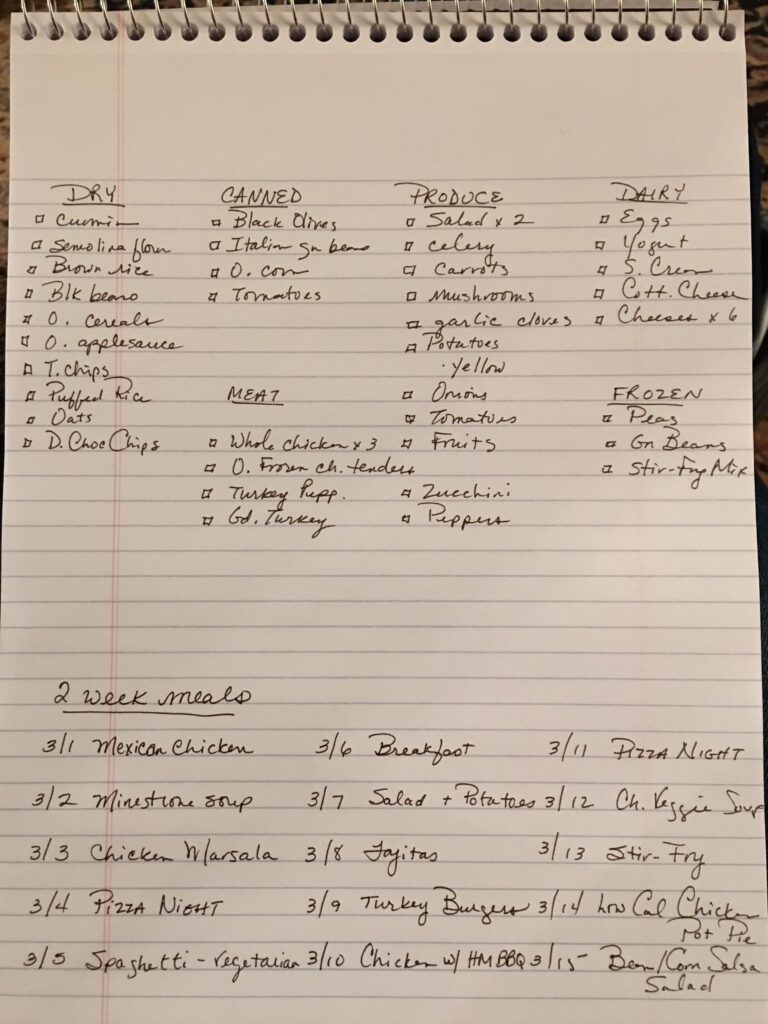 DRY
cumin
Semolina flour
Brown rice
Blk beans
O. cereals
O. applesauce
T. chips
Puffed Rice
Oats
D. Choc Chips
CANNED
Black Olives
Italian gn beans
O. corn
Tomatoes
MEAT
Whole chicken x 3
O. Frozen ch. tenders
Turkey Pepp.
Gd. Turkey
PRODUCE
Salad x 2
celery
Carrots
mushrooms
garlic cloves
Potatoes
· yellow
Onions
Tomatoes
Fruits
Zucchini
Peppers
DAIRY
Eggs
Yogurt
S. Cream
Cott. Cheese
Cheeses x 6
FROZEN
Peas
Gn Beans
Stir-Fry Mix
2 week meals
3/1 Mexican Chicken
3/2 Minestrone soup
3/3 Chicken Marsala
3/4 PIZZA NIGHT
3/5 Spaghetti - vegetarian
3/6 Breakfast
3/7 Salad + Potatoes
3/8 Fajitas
3/9 Turkey Burgers
3/10 Chicken w/ HM BBQ
3/11 PIZZA NIGHT
3/12 Ch. Veggie Soup
3/13 Stir-Fry
3/14 Low Cal Chicken
Pot Pie
3/15 Bean/Corn Salsa
Salad